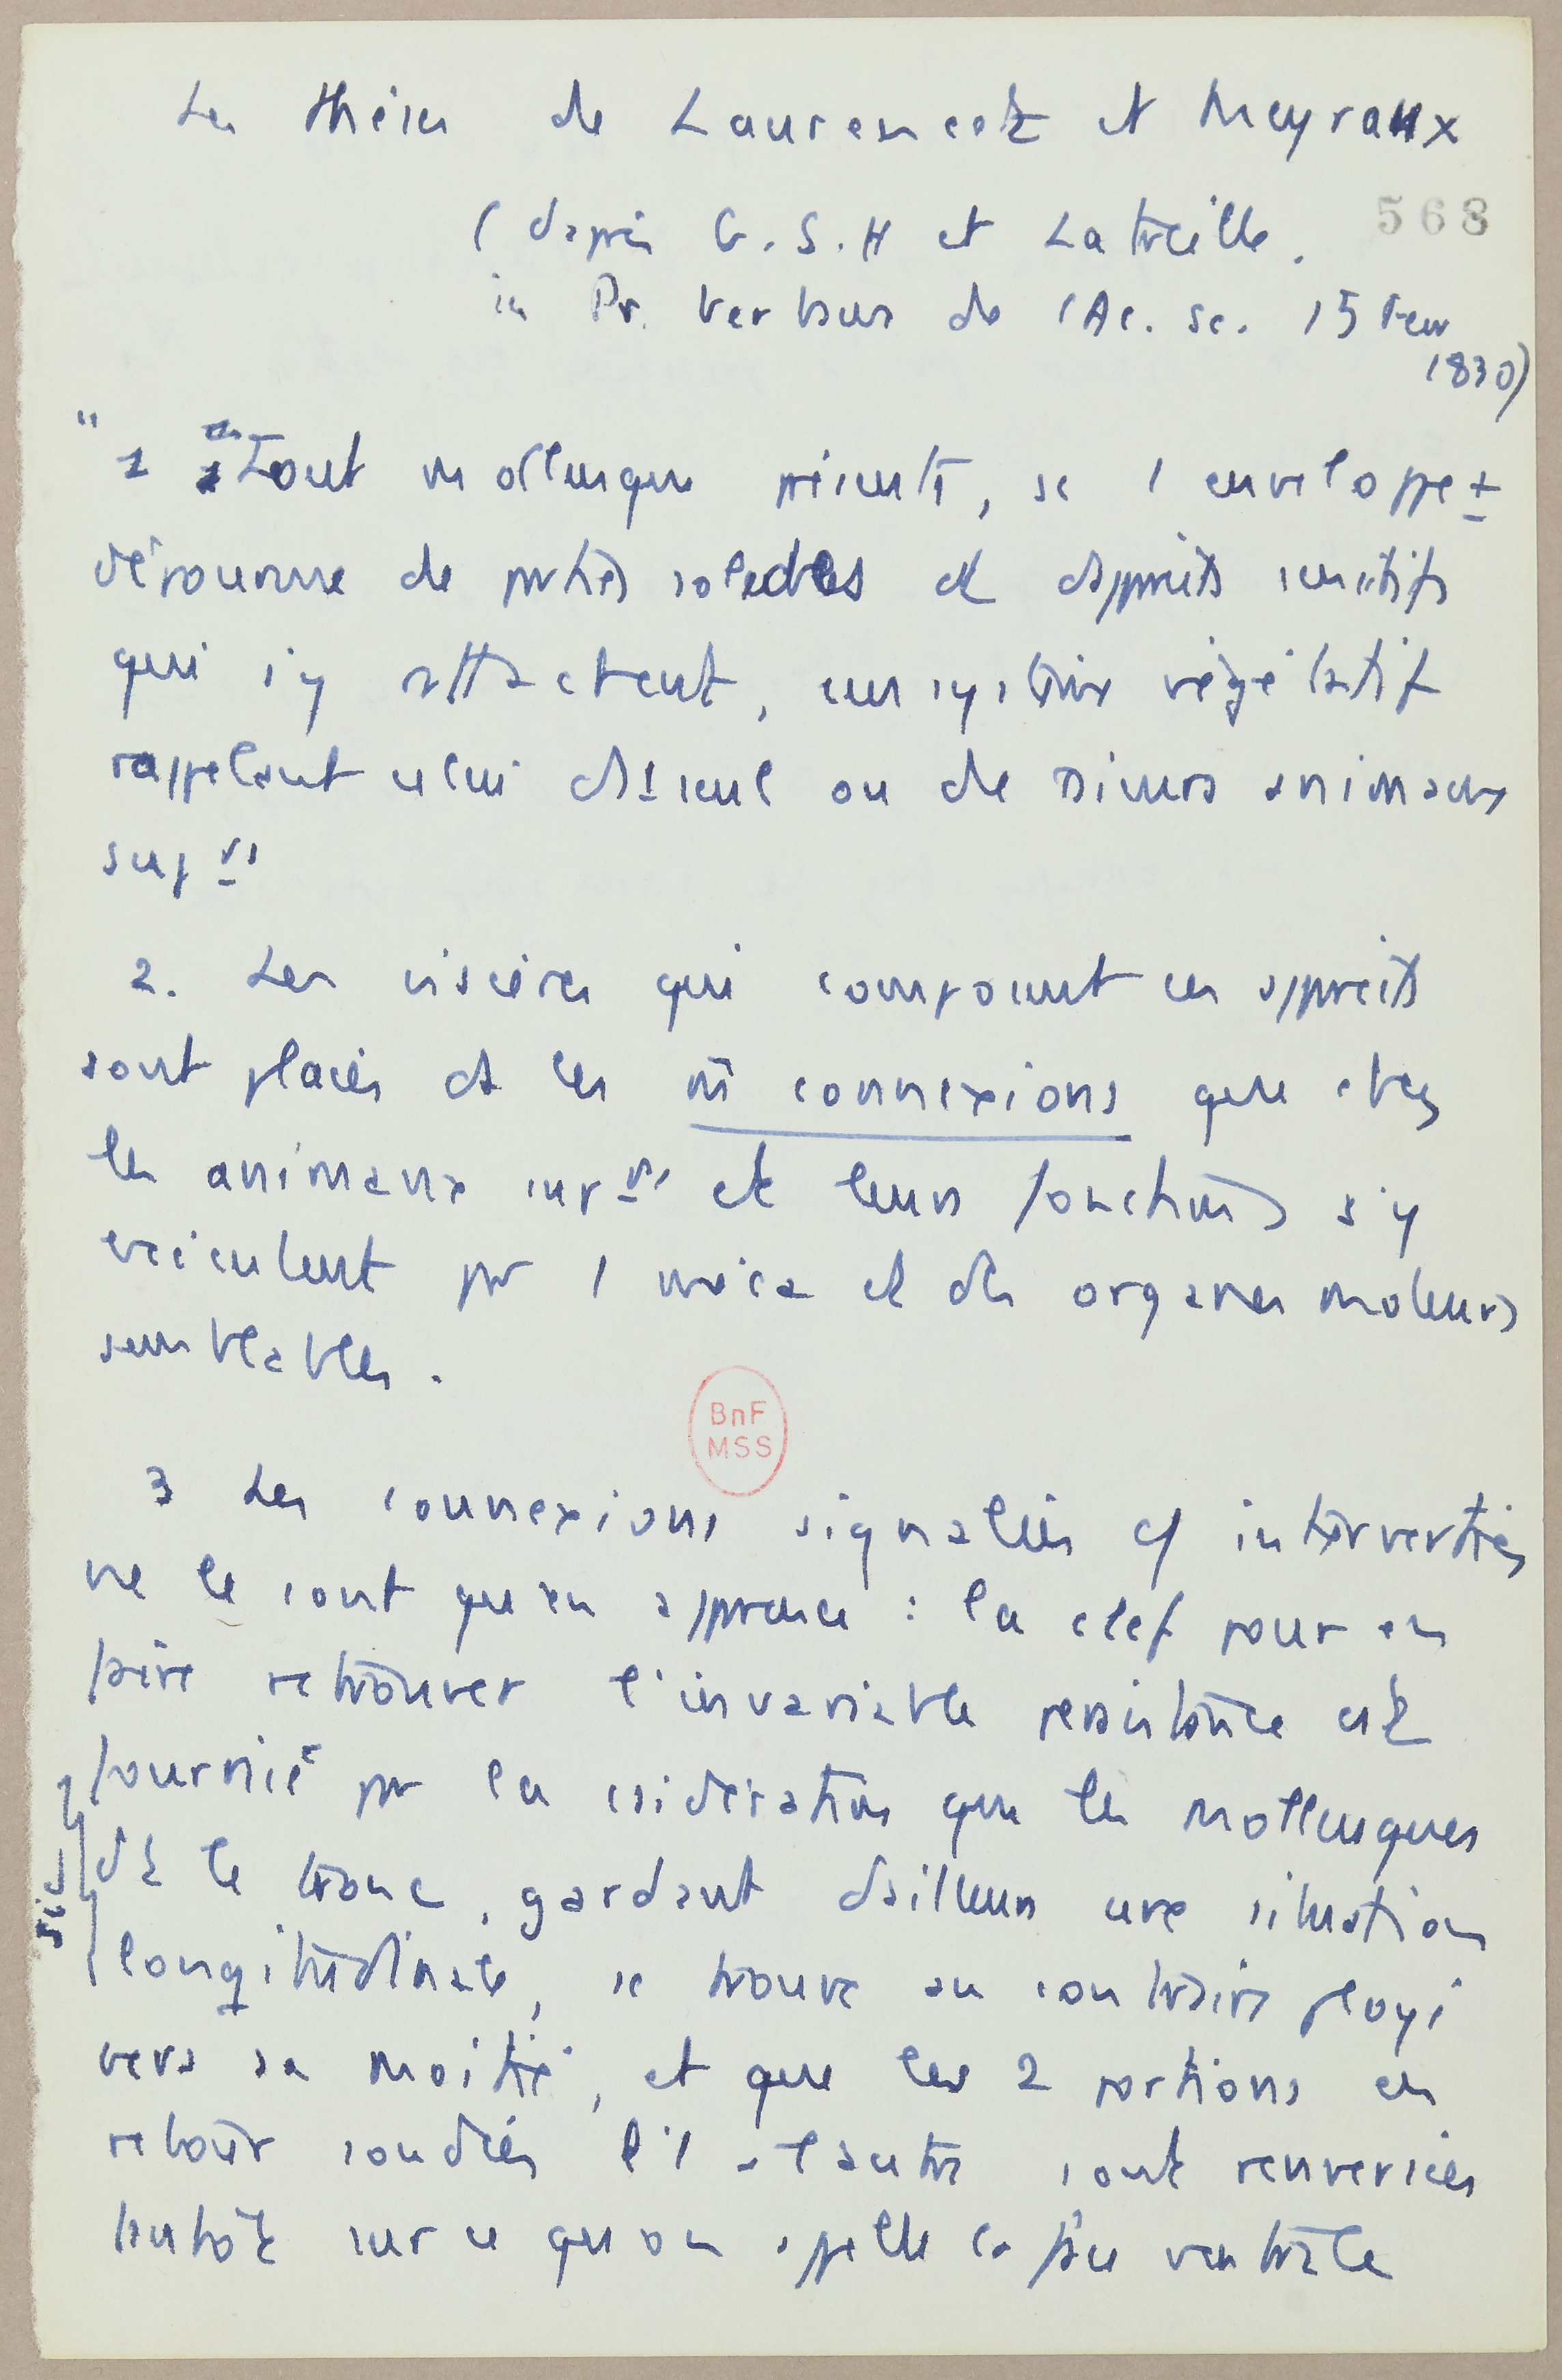 Les thèses de Laurencet et Meyraux
(d'après G.S.H et Latreille.
568
in Pr. Verbaux de l'Ac. Sc. 15 Fevr
1830)
" 1 Tout mollusque présente, ss 1 enveloppe ±
dépourvue de parties solides et d'appareils sensitifs
qui s'y rattachent, un système végétatif
rappelant celui d'1 seul ou de divers animaux
suprs
2. Les viscères qui composent ces appareils
sont placés ds les m̄ connexions que chez
les animaux suprs et leurs fonctions s'y
exécutent par 1 mécā et des organes moteurs
semblables.
BnF
MSS
3 Les connexions signalées cf interverties
ne le sont qu'en apparence : la clef pour en
faire retrouver l'invariable persistance est
fournie par la csidération que les mollusques
dt le tronc, gardant d'ailleurs une situation
sic
longitudinale, se trouve au contraire ployé
vers sa moitié, et que les 2 portions en
retour soudées l'1 à l'autre sont renversées
tantôt sur ce qu'on appelle la face ventrale